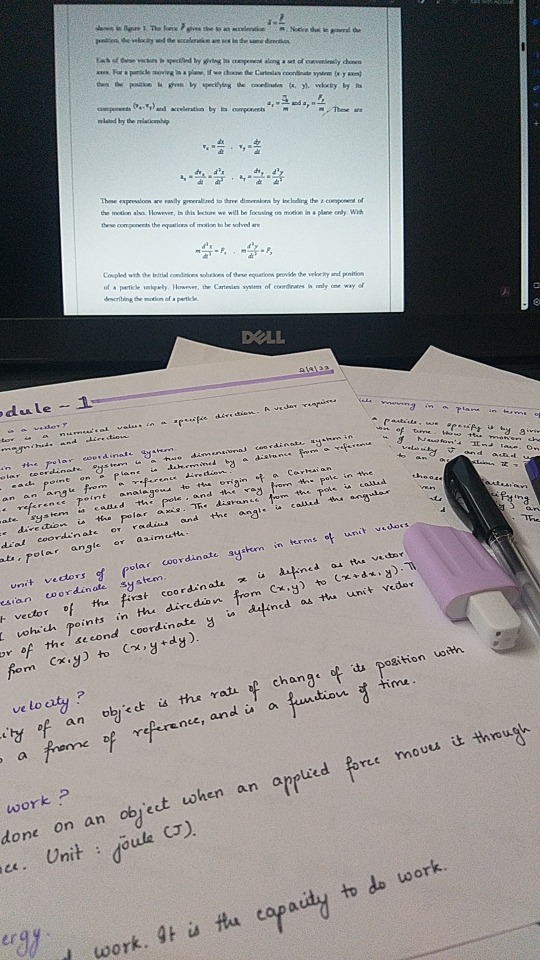 shown in figure 1. The force F gives rise to an acceleration a = F/m. Notice that in general the
position, the velocity and the acceleration are not in the same direction.
Each of these vectors is specified by giving its component along a set of conveniently chosen
axes. For a particle moving in a plane, if we choose the Cartesian coordinate system (x-y axes)
then the position is given by specifying the coordinates (x, y), velocity by its
components (vx, vy) and acceleration by its components ax = Fx/m and ay = Fy/m. These are
related by the relationship
vx = dx/dt , vy = dy/dt
ax = dvx/dt = d²x/dt² , ay = dvy/dt = d²y/dt²
These expressions are easily generalized to three dimensions by including the z component of
the motion also. However, in this lecture we will be focusing on motion in a plane only. With
these components the equations of motion to be solved are
m d²x/dt² = Fx , m d²y/dt² = Fy
Coupled with the initial conditions solutions of these equations provide the velocity and position
of a particle uniquely. However, the Cartesian system of coordinates is only one way of
describing the motion of a particle.
DELL
dule - 1
is a vector?
is a numerical value in a specific direction. A vector requires
magnitude and direction.
in the polar coordinate system.
coordinate system is a two dimensional coordinate system in
each point on a plane is determined by a distance from a reference
an angle from a reference direction.
reference point analogous to the origin of a Cartesian
system is called the pole, and the ray from the pole in the
direction is the polar axis. The distance from the pole is called
coordinate or radius and the angle is called the angular
polar angle or azimuth.
unit vectors of polar coordinate system in terms of unit vectors
coordinate system.
vector of the first coordinate x is defined as the vector
which points in the direction from (x,y) to (x+dx, y).
of the second coordinate y is defined as the unit vector
from (x,y) to (x, y+dy).
velocity?
of an object is the rate of change of its position with
a frame of reference, and is a function of time.
work?
done on an object when an applied force moves it through
Unit : joule (J).
work. It is the capacity to do work.
moving in a plane in terms of
particle, we specify it by